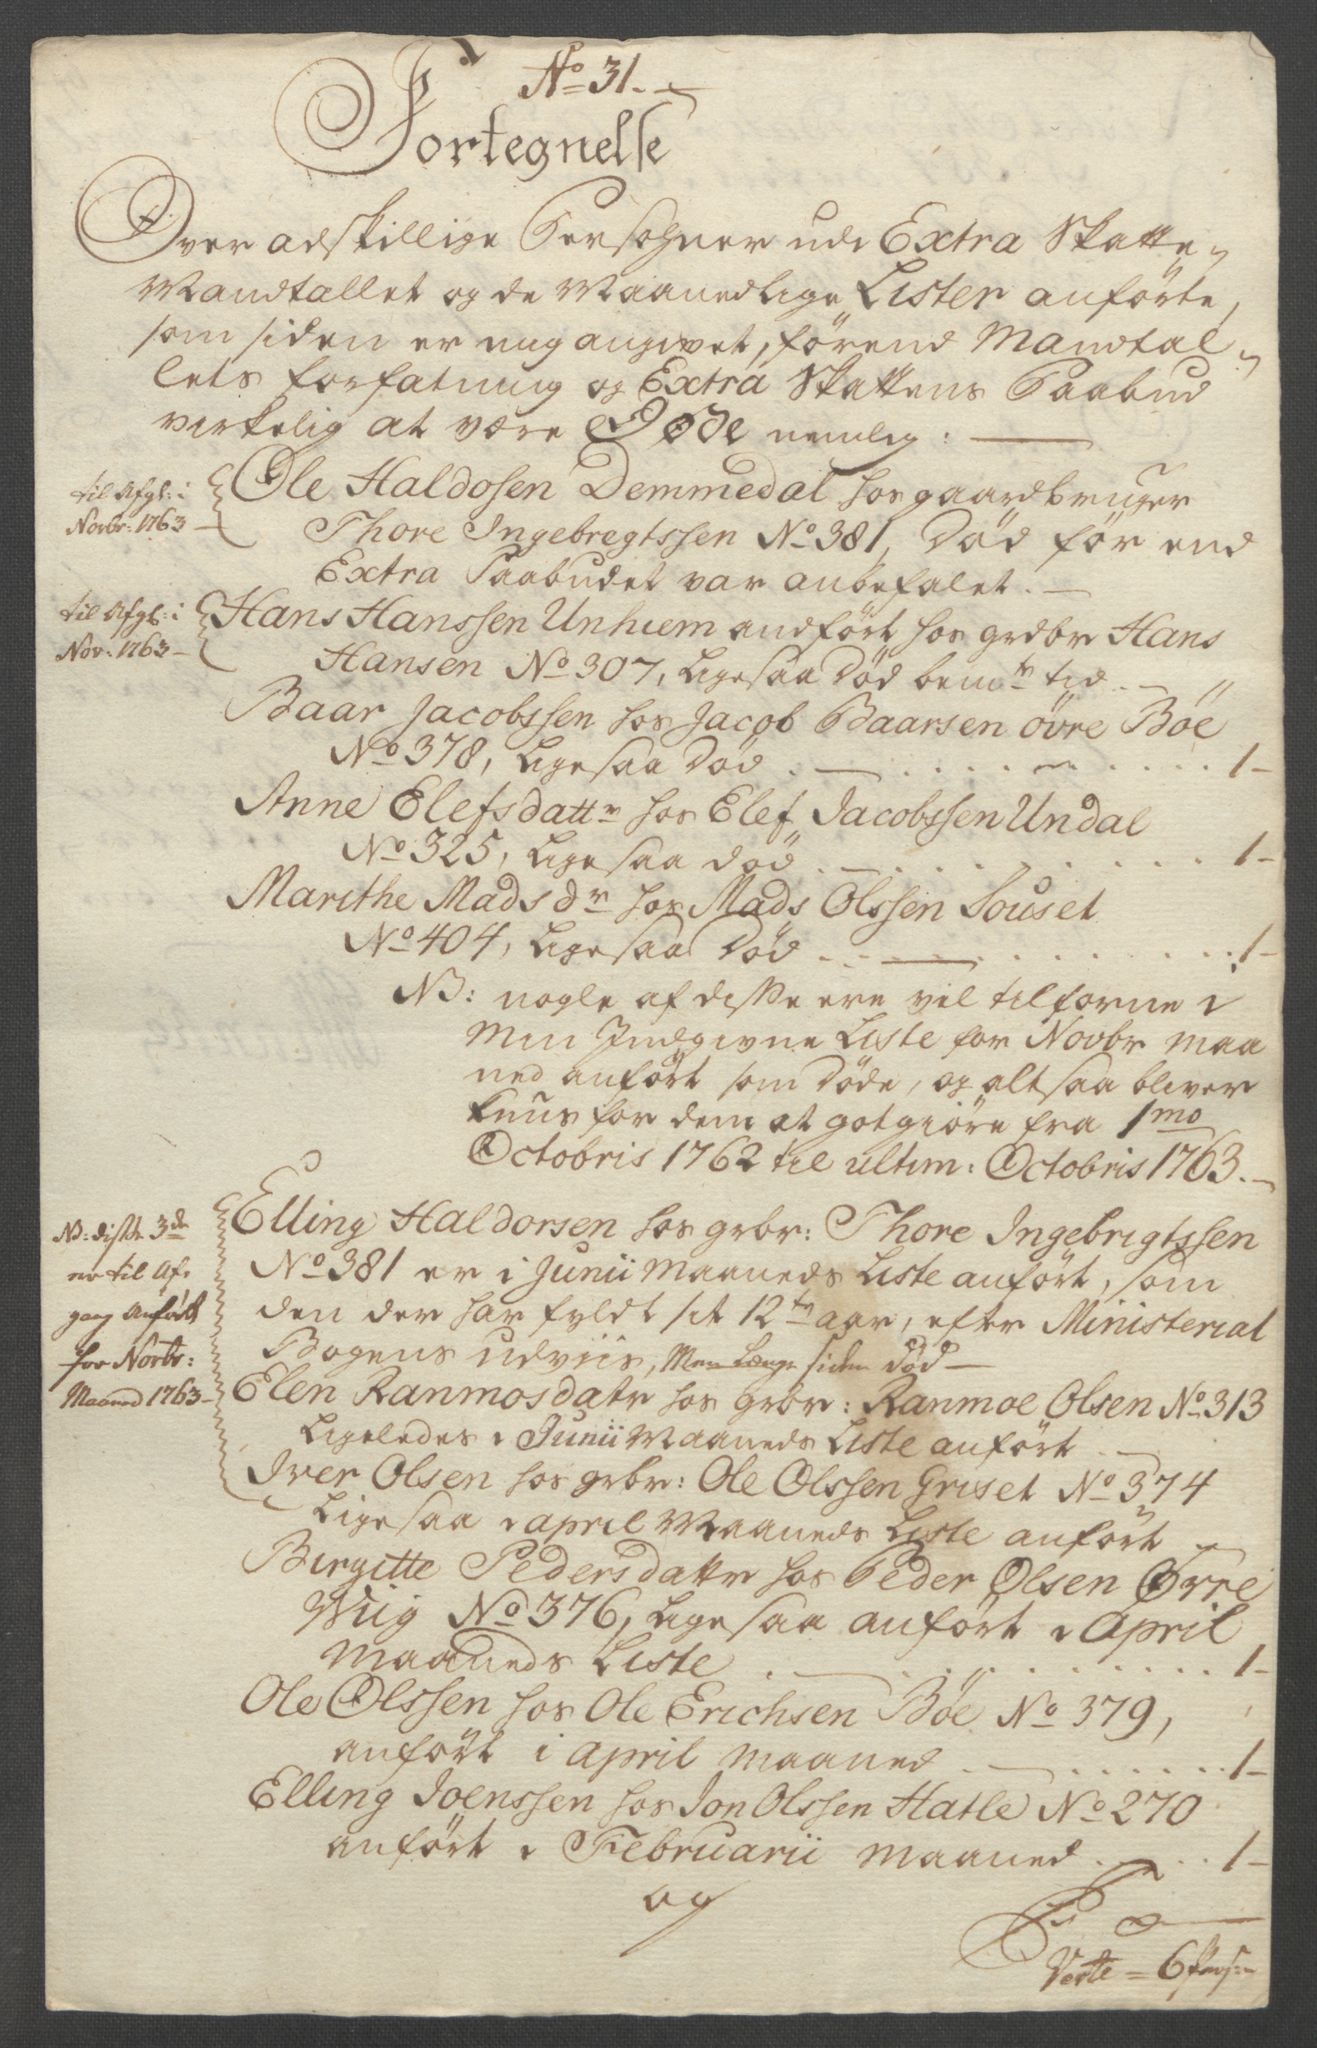 No 31.
Fortegnelse
Over adskillige Persohner udi Extra Skatte
Mandtallet og de Maanedlige Lister anförte,
som siden er mig angivet, förend Mandtal-
lets forfatning og Extra Skattens Paabud
virkelig at være Döde nemlig:
til Afg: i
Novbr: 1763
Ole Haldosen Demmedal hos gaardbruger
Thore Ingebregtssen No 381, Död för end
Extra Paabudet var anbefalet.
til Afg: i
Nov: 1763
Hans Hanssen Unhiem andfört hos grdbr Hans
Hansen No 307, Ligesaa Död bemte tid.
Baar Jacobssen hos Jacob Baarsen övre Böe
No 378, Ligesaa Död . . . . . 1-
Anne Elefsdattr hos Elef Jacobssen Undal
No 325, Ligesaa död . . . . . 1-
Marithe Mads dr hos Mads Olssen Souset
No 404, Ligesaa Död . . . . . 1-
NB: nogle af disse ere vel tilforne i
Min Indgivne Liste for Novbr maa
ned anfört som Döde, og altsaa bliver
kuns for dem at gotgiöre fra 1mo
Octobris 1762 til ultim: Octobris 1763.
NB: disse 3de
er til Af-
gang Anfördt
for Novbr:
Maaned 1763
Elling Haldorsen hos grbr: Thore Ingebrigtssen
No 381 er i Junii Maaneds Liste anfört, som
den der har fyldt sit 12te aar, efter Ministerial
Bogens udviis, Men Længe siden död
Elen Ranmosdatr hos grbr: Ranmoe Olsen No 313
Ligeledes i Junii Maaneds Liste anfört
Iver Olsen hos grbr: Ole Olssen Griset No 374
Ligesaa i april Maaneds Liste anfört
Birgitte Pedersdattr hos Peder Olsen Örre
Wiig No 376, Ligesaa anfört i April
Maaneds Liste . . . . . 1-
Ole Olssen hos Ole Erichsen Böe No 379,
anfört i April Maaned . . . . . 1-
Elling Joenssen hos Jon Olssen Hatle No 270
anfört i Februarii Maaned . . . . . 1-
og
Verte = 6